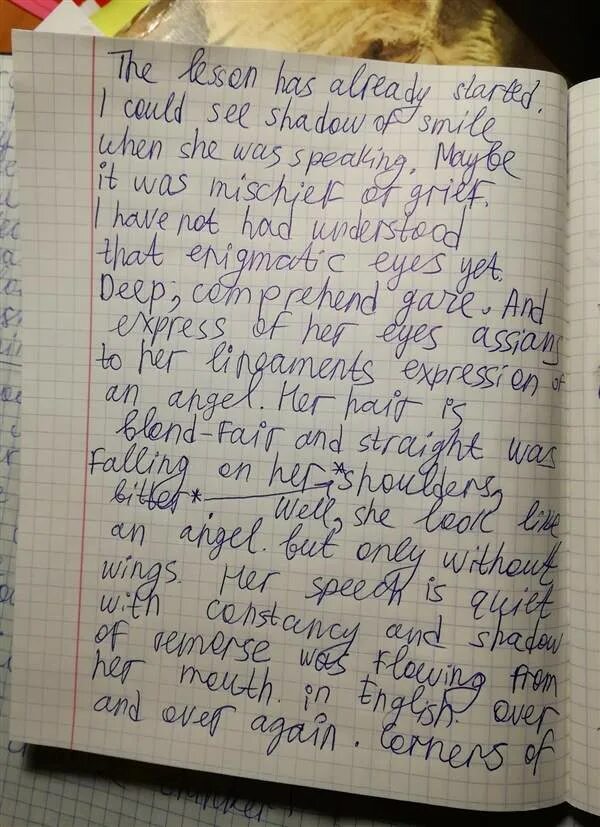 The lesson has already started.
I could see shadow of smile
when she was speaking. Maybe
it was mischief or grief.
I have not had understood
that enigmatic eyes yet.
Deep, comprehend gaze. And
express of her eyes assians
to her lingaments expression of
an angel. Her hair is
blond-fair and straight was
falling on her *shoulders,
bitter*
Well, she look like
an angel. but only without
wings. Her speech is quiet
with constancy and shadow
of remorse was flowing from
her mouth. in English. over
and over again. Corners of